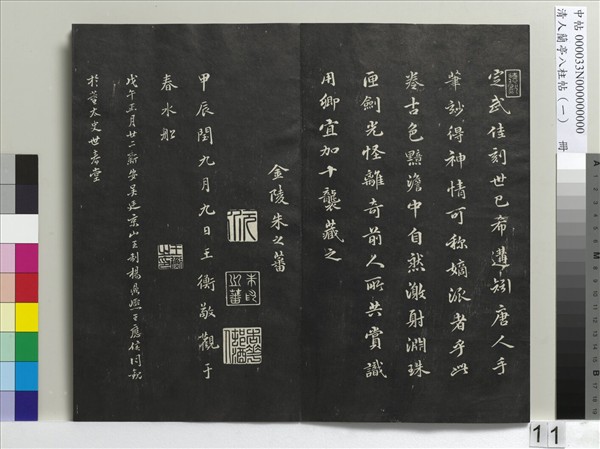 中帖 000033N000000000
清人蘭亭八柱帖（一） 冊
定武佳刻世已希遘矧唐人手
筆妙得神情可称嫡派者乎此
卷古色黯澹中自然激射淵珠
匣劍光怪離奇前人所共賞識
用卿宜加十襲藏之
金陵朱之蕃
甲辰閏九月九日王衡敬觀于
春水船
戊午正月廿二新安吳廷京山王制楊鼎熙王應侯同觀
於董太史世春堂
朱氏
之蕃
11